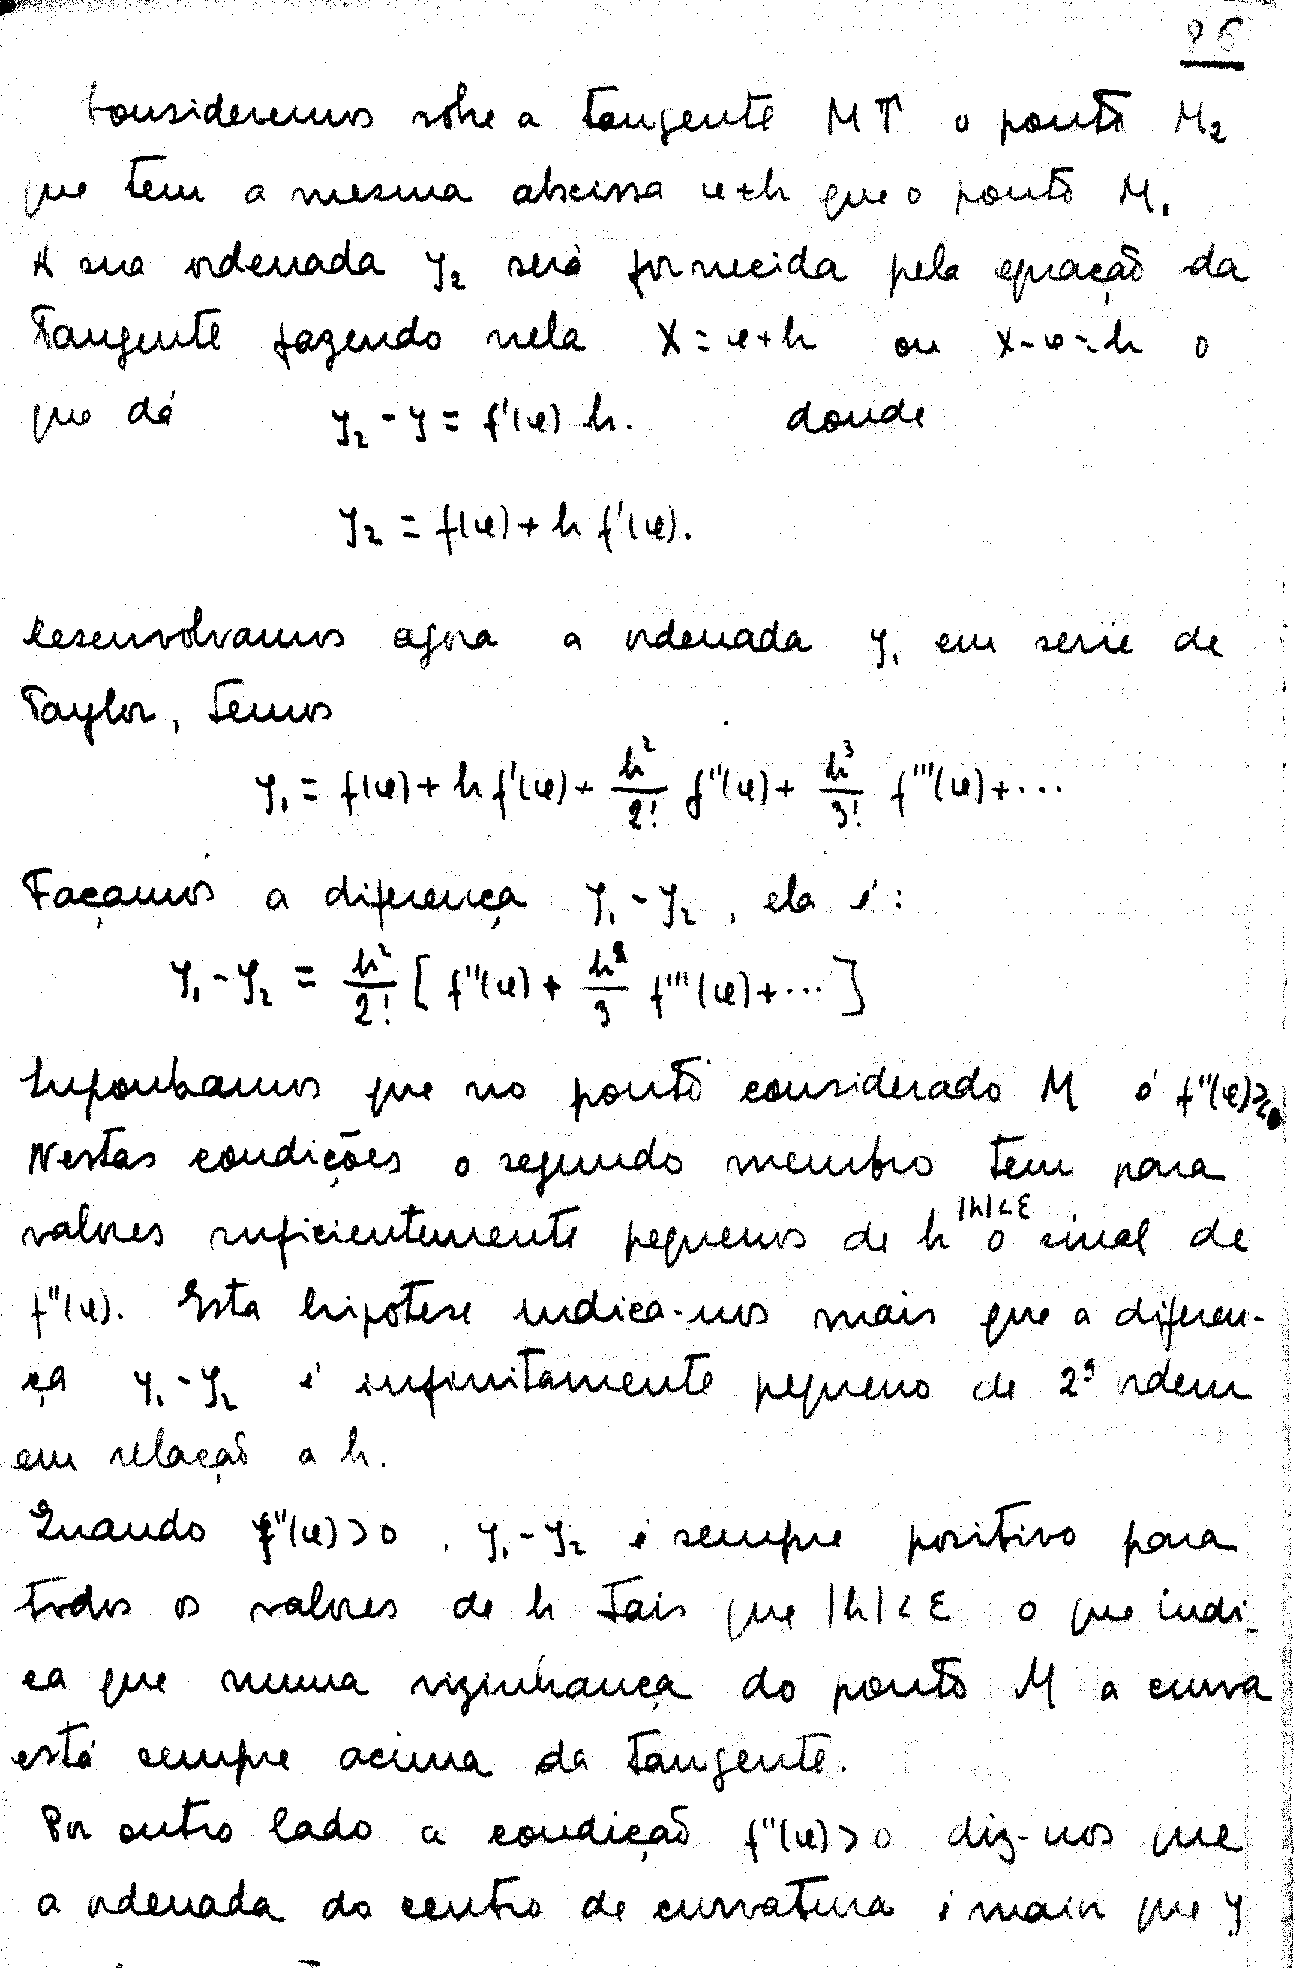 Consideremos sobre a tangente MT o ponto M₂
que tem a mesma abscissa x+h que o ponto M₁
A sua ordenada y₂ será fornecida pela equação da
tangente fazendo nela X=x+h ou X-x=h o
que dá y₂-y=f'(x) h. donde
y₂=f(x)+h f'(x).
Desenvolvamos agora a ordenada y₁ em serie de
Taylor, temos
y₁=f(x)+h f'(x)+ h²/2! f''(x)+ h³/3! f'''(x)+...
Façamos a diferença y₁-y₂, ela é:
y₁-y₂ = h²/2! [f''(x)+ h/3 f'''(x)+...]
Suponhamos que no ponto considerado M é
Nestas condições o segundo membro tem para
valores suficientemente pequenos de h |h|<ε o sinal de
f''(x). Esta hipotese indica-nos mais que a diferen-
ça y₁-y₂ é infinitamente pequeno de 2ª ordem
em relação a h.
Quando f''(x)>0, y₁-y₂ é sempre positivo para
todos os valores de h tais que |h|<ε o que indi-
ca que numa vizinhança do ponto M a curva
está sempre acima da tangente.
Por outro lado a condição f''(x)>0 diz-nos que
a ordenada do centro de curvatura é maior que y